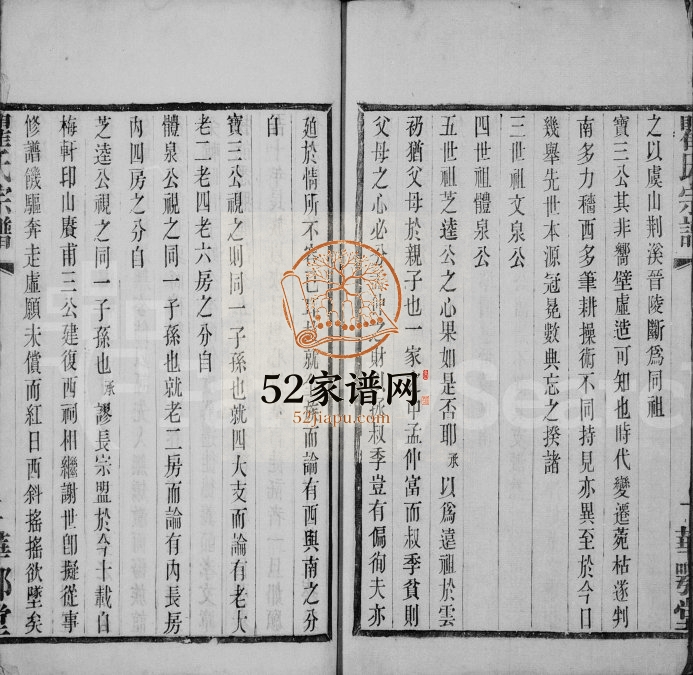 之以虞山荆溪晉陵斷爲同祖
寶三公其非嚮壁虛造可知也時代變遷菀枯遂判
南多力穡西多筆耕操術不同持見亦異至於今日
幾舉先世本源冠冕數典忘之揆諸
三世祖文泉公
四世祖體泉公
五世祖芝逵公之心果如是否耶承以爲遠祖於雲
礽猶父母於親子也一家 中孟仲富而叔季貧則
父母之心必 仲之財 叔季豈有偏徇夫亦
廹於情所不容已 就 而論有西與南之分
自
寶三公視之則同一子孫也就四大支而論有老大
老二老四老六房之分自
體泉公視之同一子孫也就老二房而論有內長房
內四房之分自
芝逵公視之同一子孫也承謬長宗盟於今十載自
梅軒印山賡甫三公建復西祠相繼謝世卽擬從事
修譜饑驅奔走虛願未償而紅日西斜搖搖欲墜矣
瞿氏宗譜
華鄂堂
52家谱网
52jiapu.com